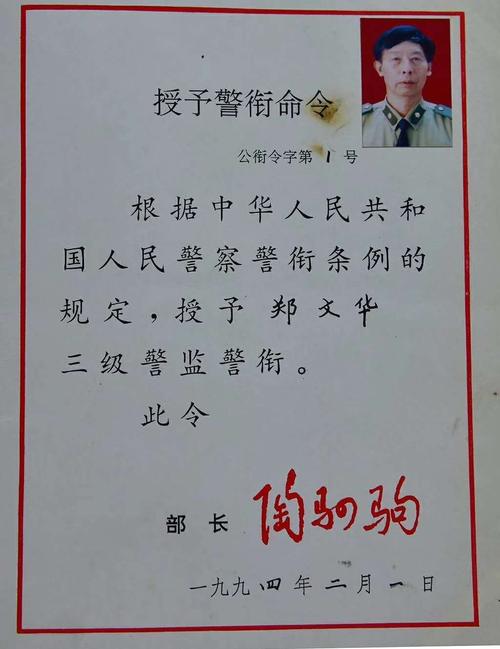 授予警衔命令
公衔令字第 1 号
根据中华人民共和
国人民警察警衔条例的
规定，授予 郑文华
三级警监警衔。
此令
部长 陶驷驹
一九九四年二月一日